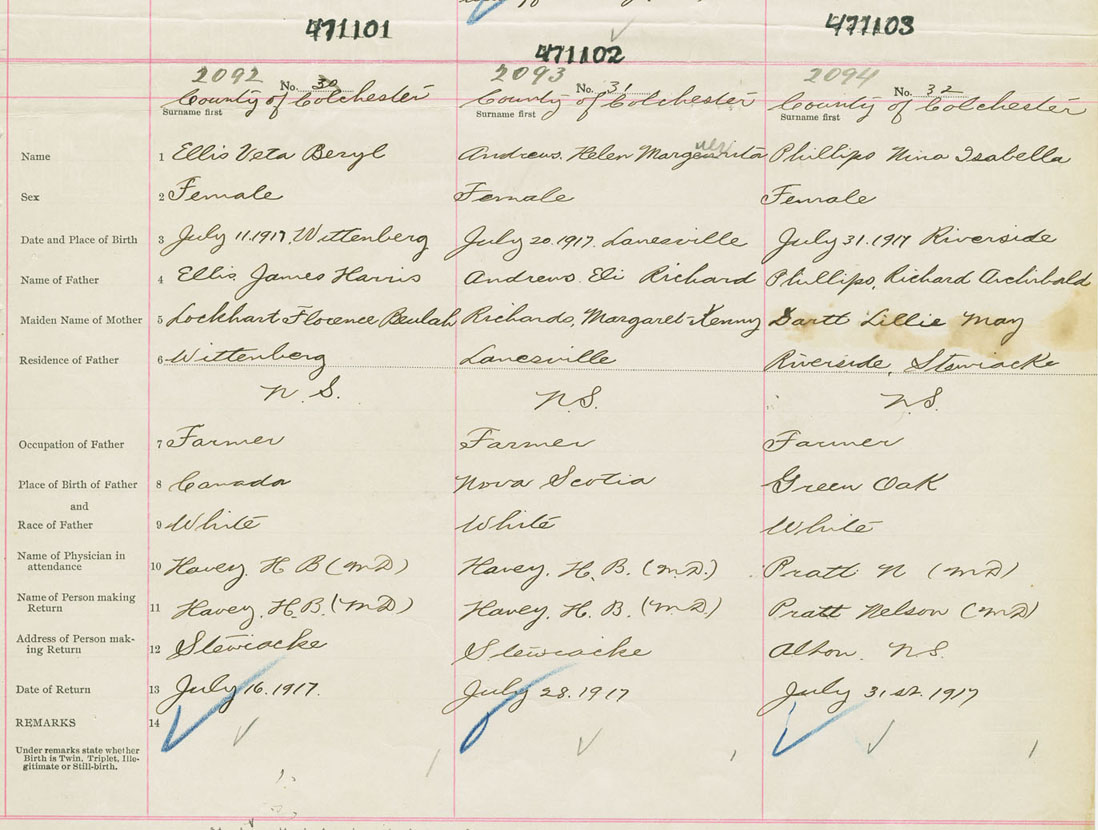 471101 471102 471103
2092 2093 2094
No. 30 No. 31 No. 32
County of Colchester County of Colchester County of Colchester
Surname first Surname first Surname first
Name 1 Ellis Veta Beryl Andrews, Helen Phillips Nina Isabella
Sex 2 Female Female Female
Date and Place of Birth 3 July 11.1917. Wittenberg July 20.1917. Lanesville July 31.1917 Riverside
Name of Father 4 Ellis. James Harris Andrews. Eli Richard Phillips, Richard Archibald
Maiden Name of Mother 5 Lockhart Florence Beulah Richards, Margaret Kenny Dartt Lillie May
Residence of Father 6 Wittenberg Lanesville Riverside, Stewiacke
N.S. N.S. N.S.
Occupation of Father 7 Farmer Farmer Farmer
Place of Birth of Father 8 Canada Nova Scotia Green Oak
and
Race of Father 9 White White White
Name of Physician in
attendance 10 Havey. H B (MD) Havey. H. B. (M.D.) Pratt N (MD)
Name of Person making
Return 11 Havey. H.B. (MD) Havey. H. B. (MD.) Pratt Nelson (MD)
Address of Person mak-
ing Return 12 Stewiacke Stewiacke Alton. N.S.
Date of Return 13 July 16.1917. July 28.1917 July 31st.1917
REMARKS 14
Under remarks state whether
Birth is Twin, Triplet, Ille-
gitimate or Still-birth.